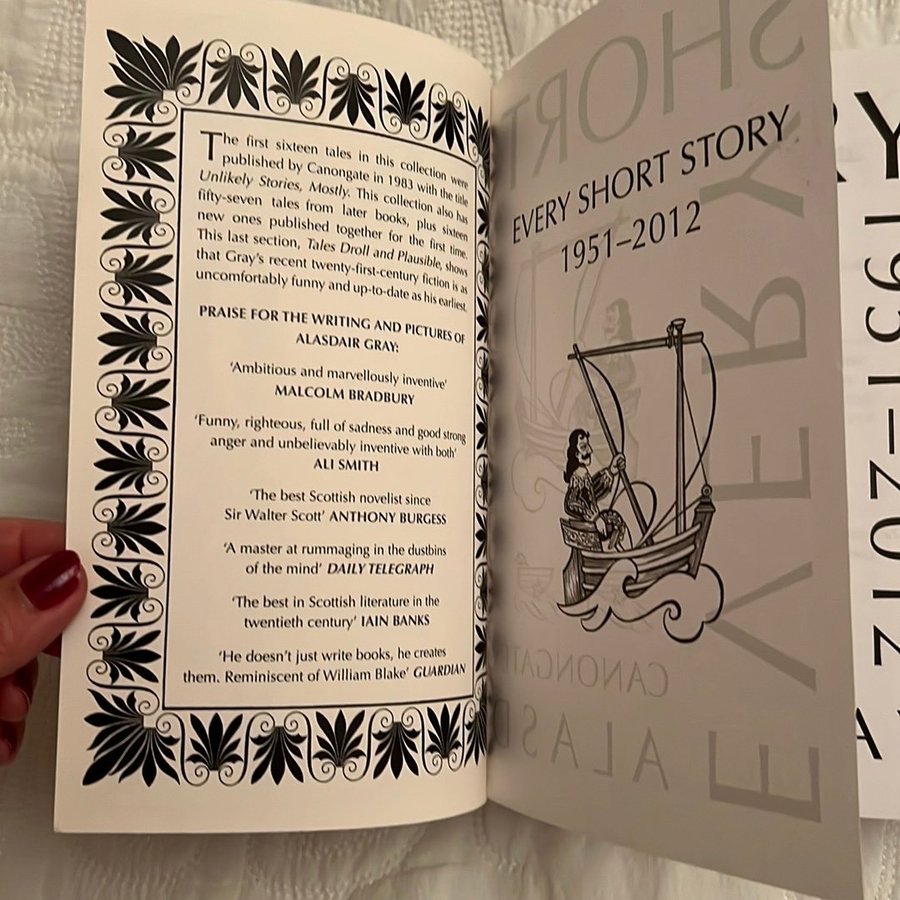 The first sixteen tales in this collection were
published by Canongate in 1983 with the title
Unlikely Stories, Mostly. This collection also has
fifty-seven tales from later books, plus sixteen
new ones published together for the first time.
This last section, Tales Droll and Plausible, shows
that Gray's recent twenty-first-century fiction is as
uncomfortably funny and up-to-date as his earliest.
PRAISE FOR THE WRITING AND PICTURES OF
ALASDAIR GRAY:
'Ambitious and marvellously inventive'
MALCOLM BRADBURY
'Funny, righteous, full of sadness and good strong
anger and unbelievably inventive with both'
ALI SMITH
'The best Scottish novelist since
Sir Walter Scott' ANTHONY BURGESS
'A master at rummaging in the dustbins
of the mind' DAILY TELEGRAPH
'The best in Scottish literature in the
twentieth century' IAIN BANKS
'He doesn't just write books, he creates
them. Reminiscent of William Blake' GUARDIAN
EVERY SHORT STORY
1951–2012
SHORT
EVERY
CANONGATE
ALASD
RY
1951–2012
A